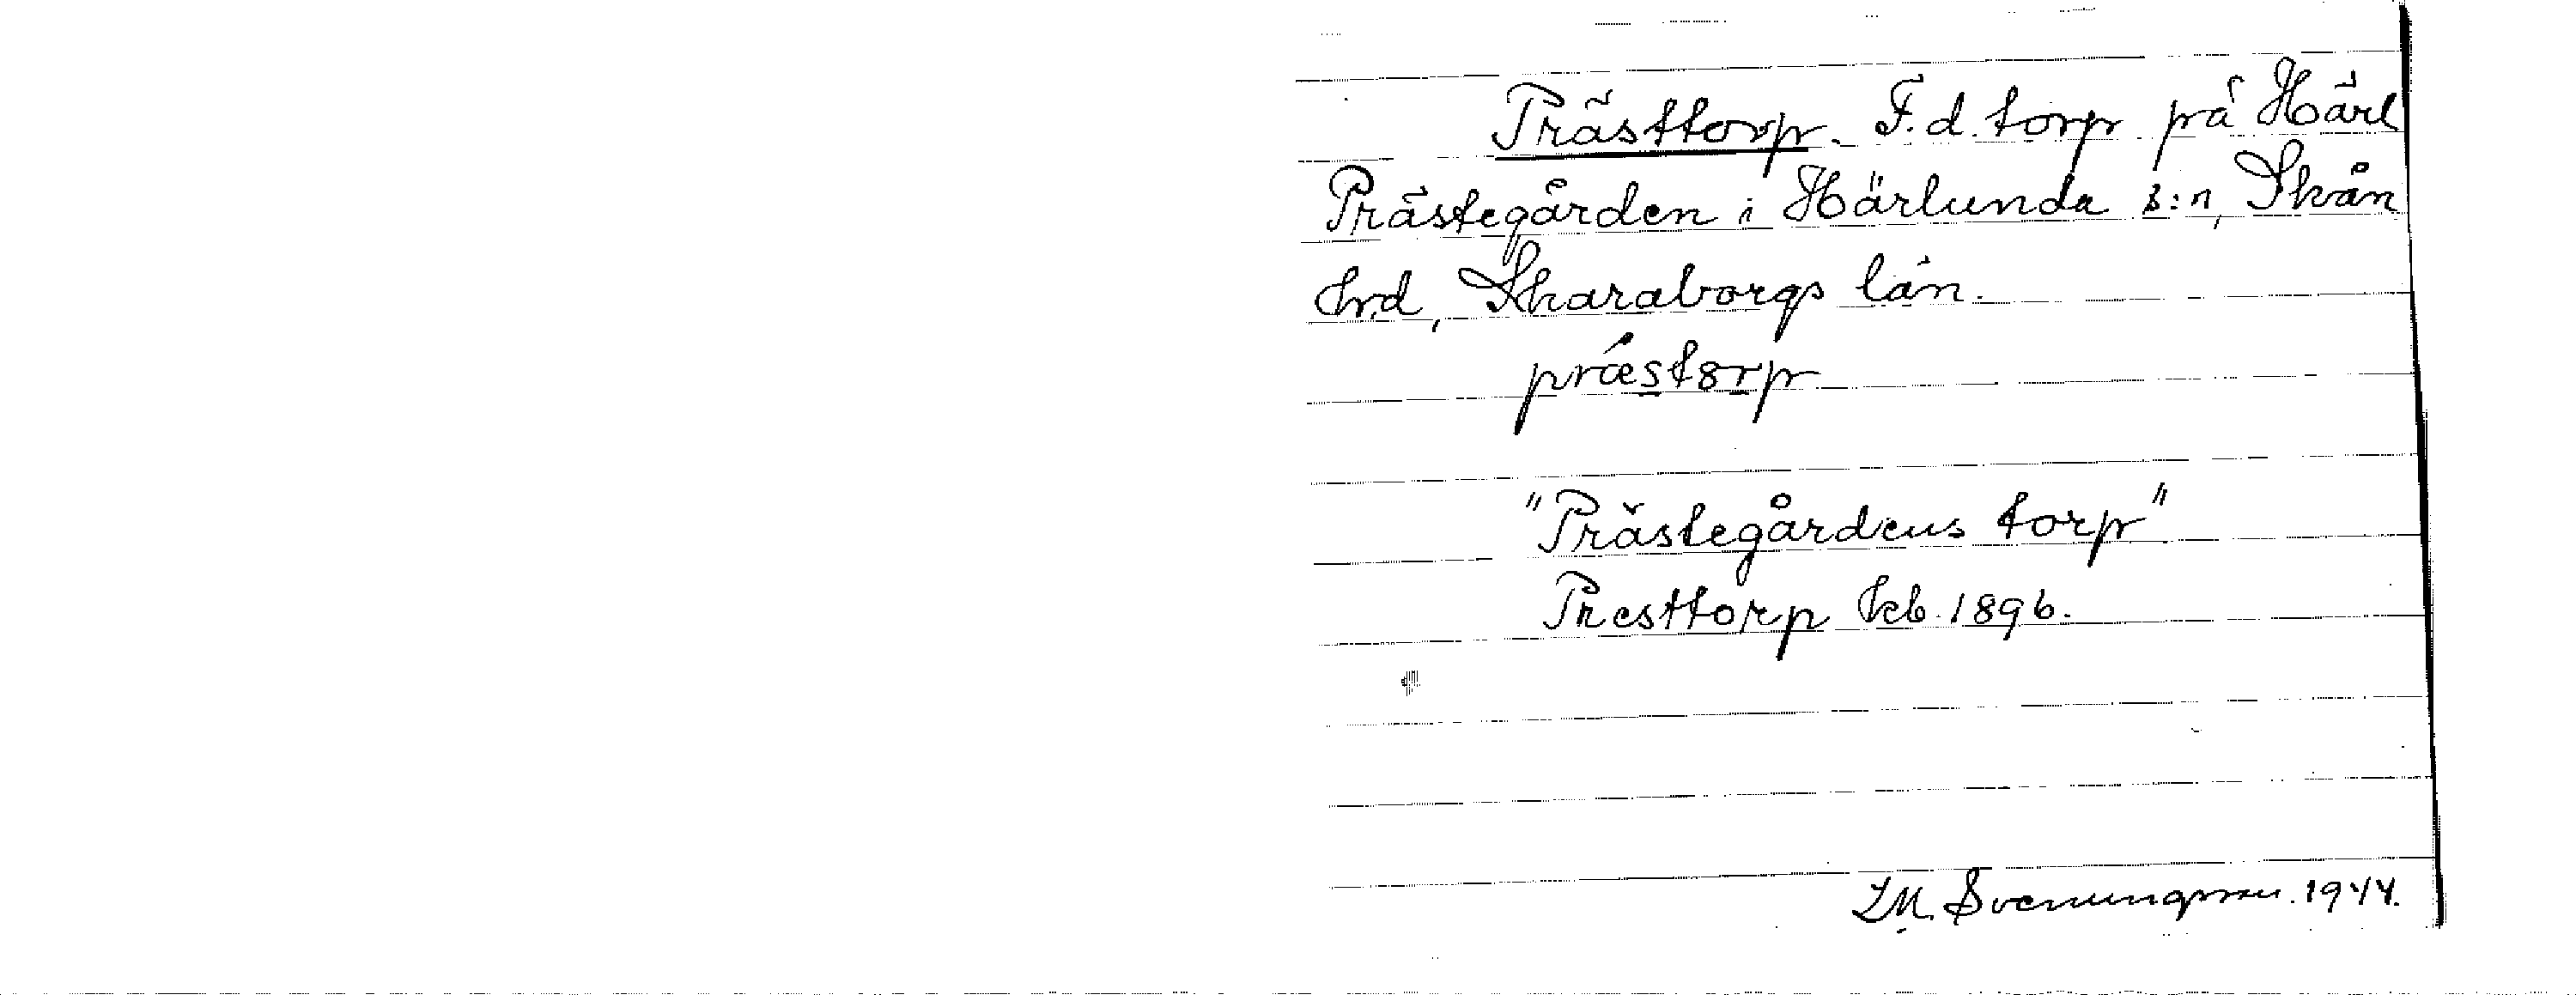 Prästtorp. F.d. torp på Härl
Prästegården i Härlunda s:n, Skån
hd, Skaraborgs län.
præstorp
"Prästegårdens torp"
Presttorp Jeb. 1896.
I.M. Svenungsson. 1944.